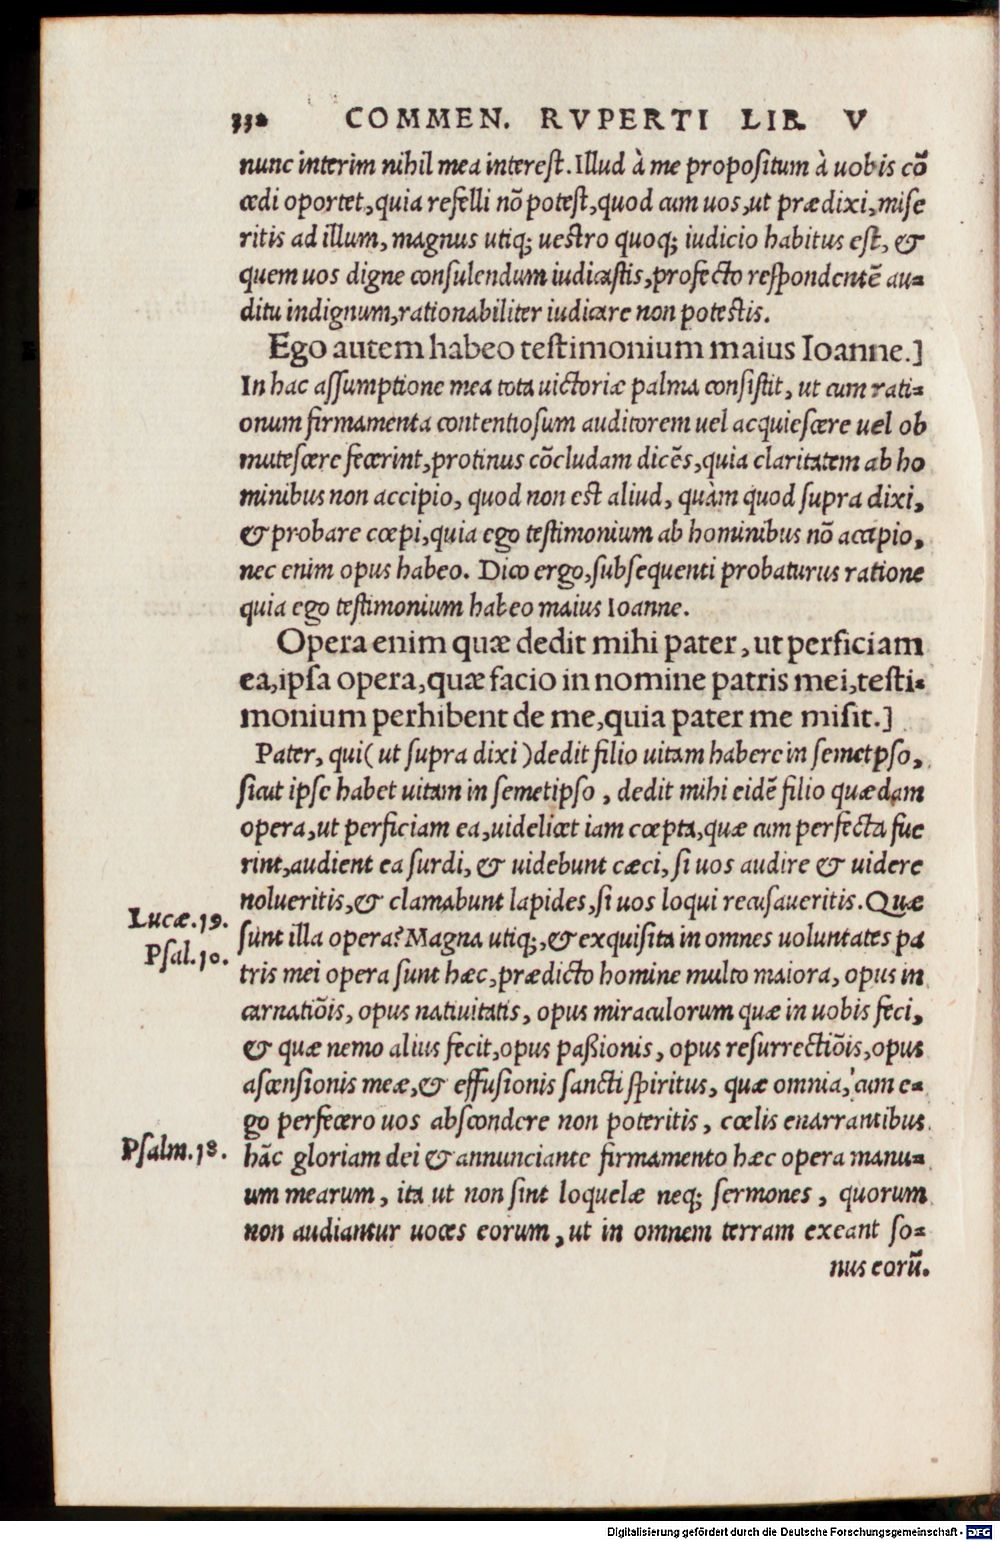 332 COMMEN. RVPERTI LIB. V
nunc interim nihil mea interest. Illud à me propositum à uobis cō
cedi oportet, quia refelli nō potest, quod cum uos, ut prædixi, mise
ritis ad illum, magnus utiq; uestro quoq; iudicio habitus est, &
quem uos digne consulendum iudicastis, profecto respondentē au-
ditu indignum, rationabiliter iudicare non potestis.
Ego autem habeo testimonium maius Ioanne.]
In hac assumptione mea tota uictoriæ palma consistit, ut cum rati-
onum firmamenta contentiosum auditorem uel acquiescere uel ob
mutescere fecerint, protinus cōcludam dicēs, quia claritatem ab ho
minibus non accipio, quod non est aliud, quàm quod supra dixi,
& probare cœpi, quia ego testimonium ab hominibus nō accipio,
nec enim opus habeo. Dico ergo, subsequenti probaturus ratione
quia ego testimonium habeo maius Ioanne.
Opera enim quæ dedit mihi pater, ut perficiam
ea, ipsa opera, quæ facio in nomine patris mei, testi-
monium perhibent de me, quia pater me misit.]
Pater, qui (ut supra dixi) dedit filio uitam habere in semetpso,
sicut ipse habet uitam in semetipso, dedit mihi eidē filio quædam
opera, ut perficiam ea, uidelicet iam cœpta, quæ cum perfecta fue
rint, audient ea surdi, & uidebunt cæci, si uos audire & uidere
nolueritis, & clamabunt lapides, si uos loqui recusaueritis. Quæ
Lucæ. 19.
sunt illa opera? Magna utiq;, & exquisita in omnes uoluntates pa
Psal. 10.
tris mei opera sunt hæc, prædicto homine multo maiora, opus in
carnatiōis, opus natiuitatis, opus miraculorum quæ in uobis feci,
& quæ nemo alius fecit, opus passionis, opus resurrectiōis, opus
ascensionis meæ, & effusionis sancti spiritus, quæ omnia, cum e-
go perfecero uos abscondere non poteritis, cœlis enarrantibus
Psalm. 18.
hāc gloriam dei & annunciante firmamento hæc opera manu-
um mearum, ita ut non sint loquelæ neq; sermones, quorum
non audiantur uoces eorum, ut in omnem terram exeant so-
nus eorū.
Digitalisierung gefördert durch die Deutsche Forschungsgemeinschaft - DFG